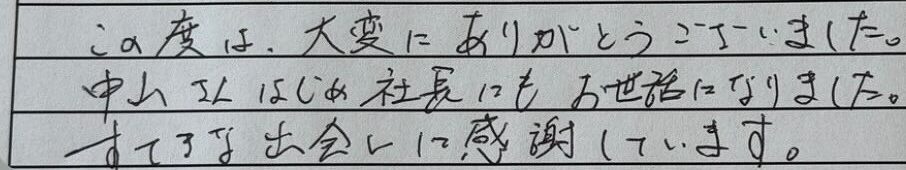 この度は、大変にありがとうございました。
中山さんはじめ社長にもお世話になりました。
すてきな出会いに感謝しています。